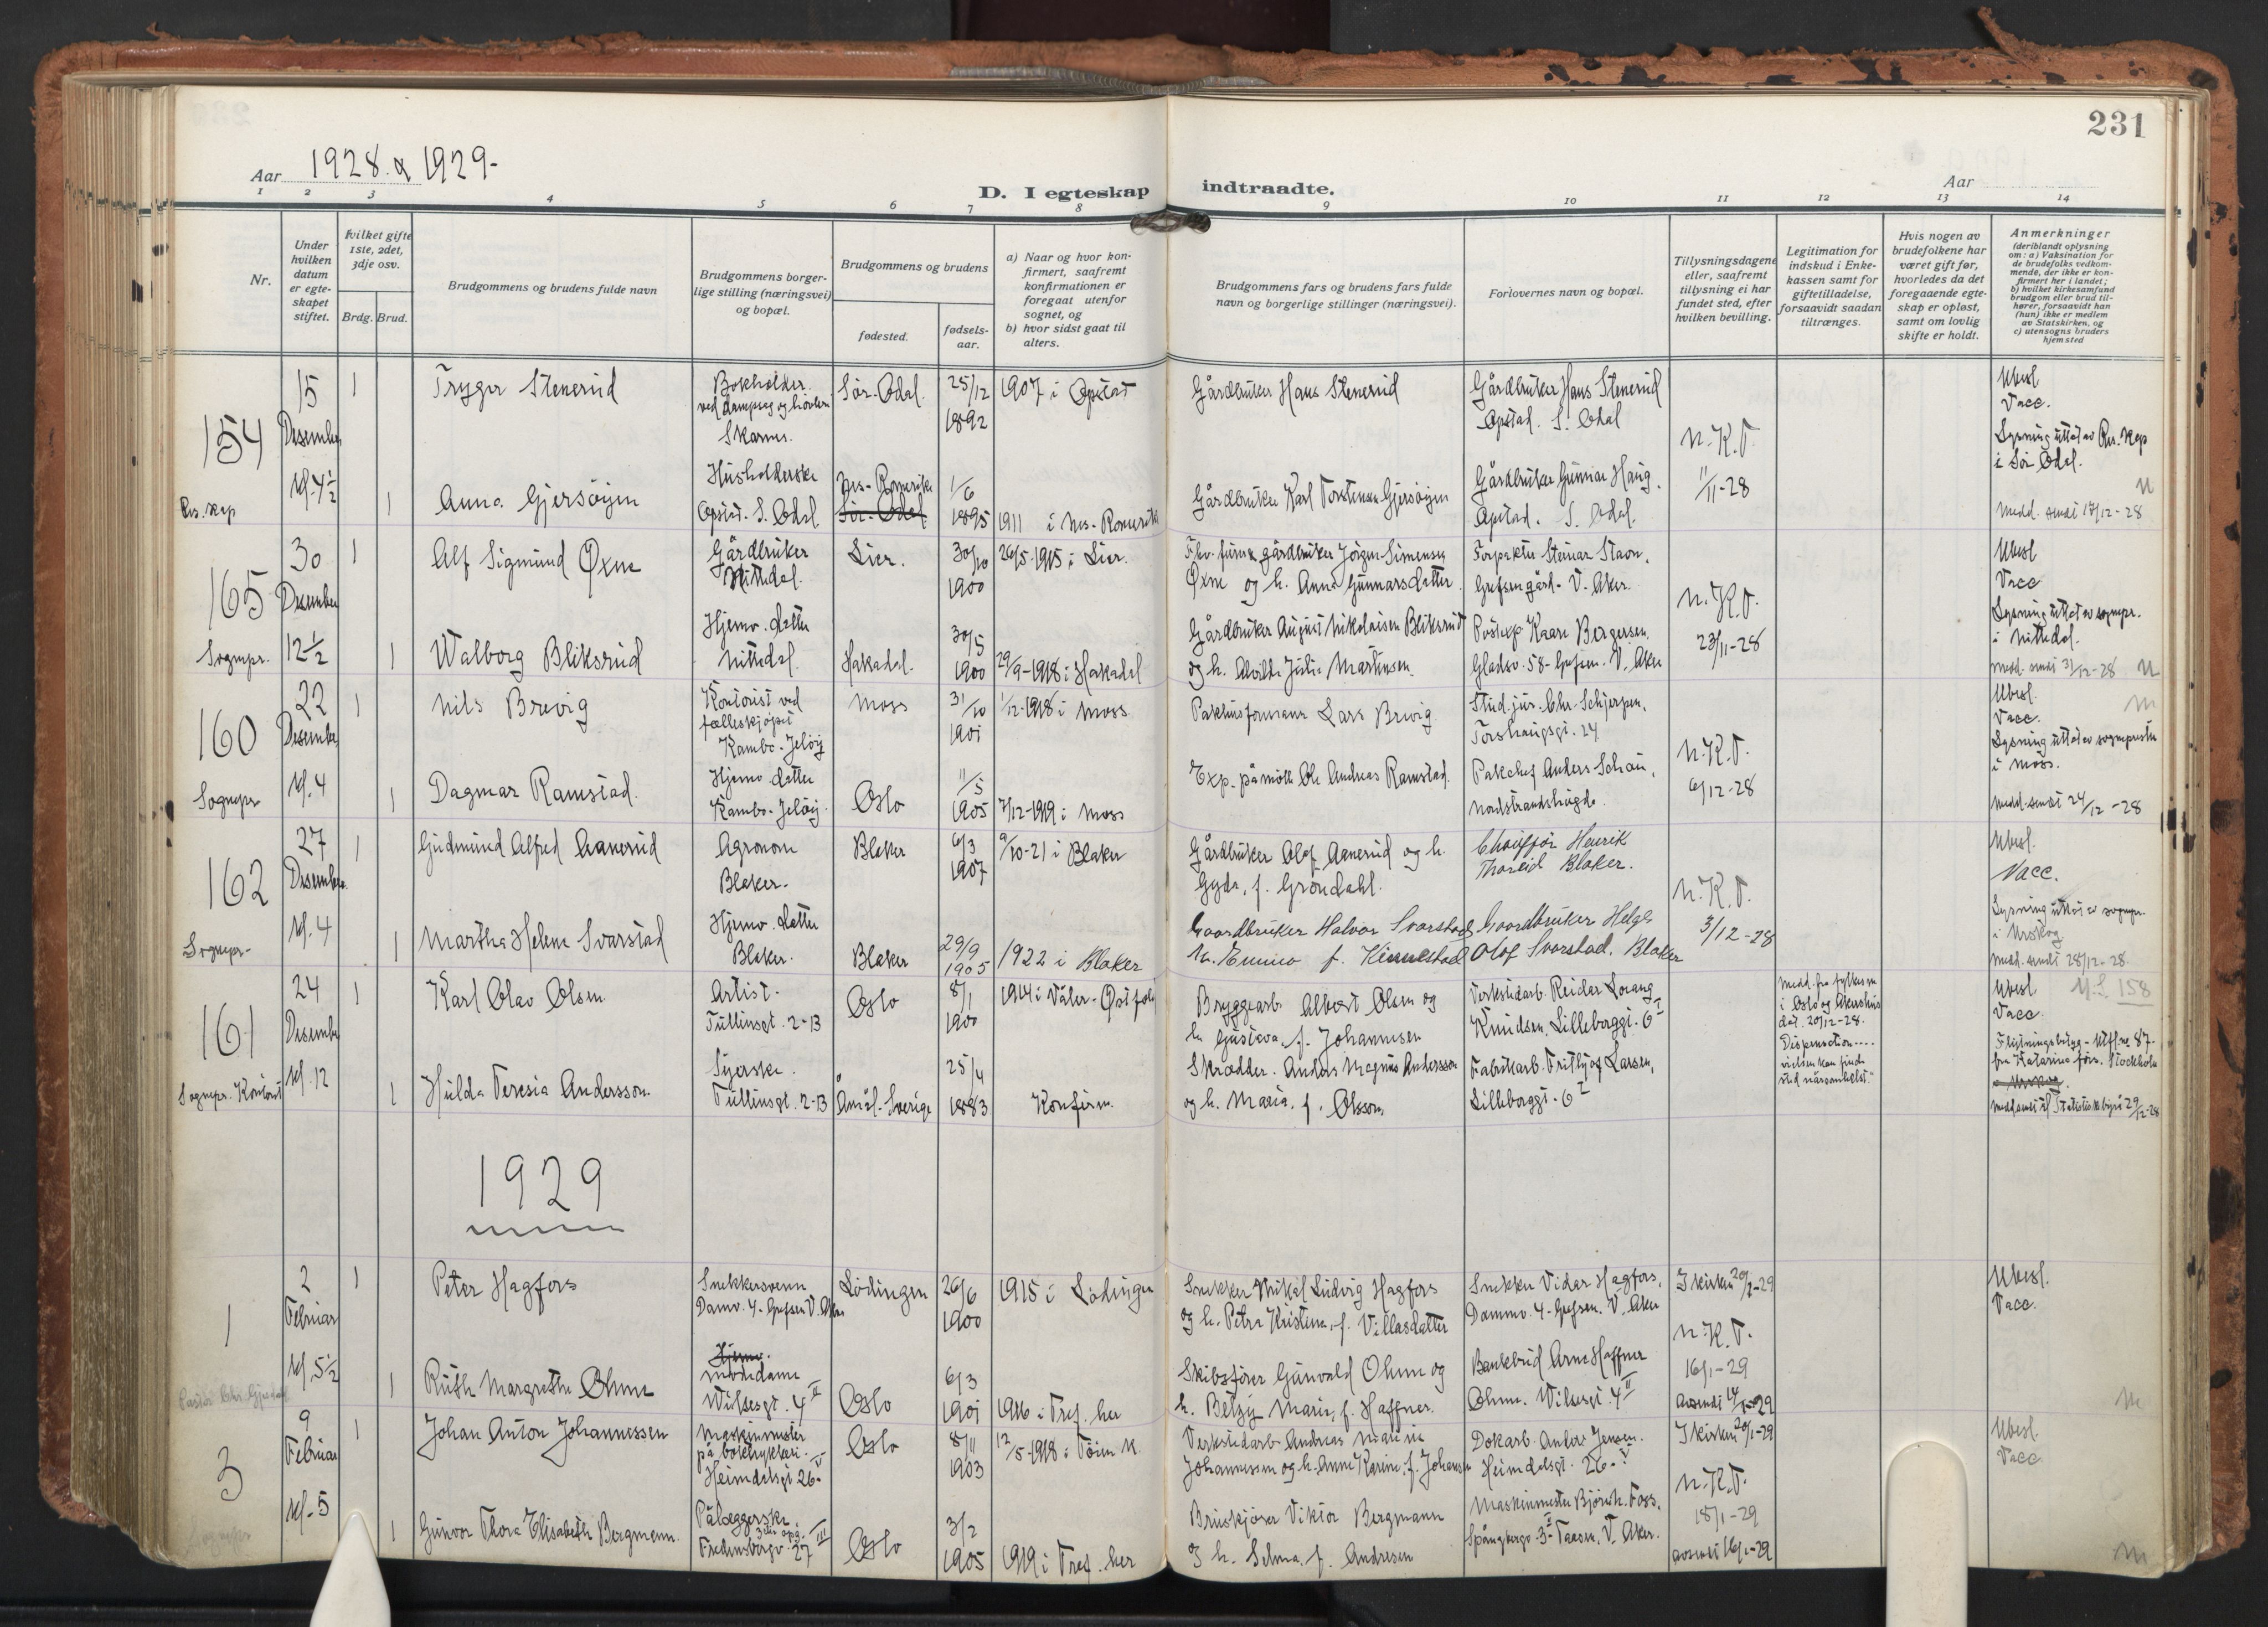 231
Aar 1928. & 1929-
D. I egteskap indtraadte.
Aar
1 2 3 4 5 6 7 8 9 10 11 12 13 14
Nr.
Under hvilken datum er egte-skapet stiftet.
Hvilket gifte 1ste, 2det, 3dje osv.
Brdg. Brud.
Brudgommens og brudens fulde navn
Brudgommens borger-lige stilling (næringsvei) og bopæl.
Brudgommens og brudens
fødested.
fødsels-aar.
a) Naar og hvor kon-firmert, saafremt konfirmationen er foregaat utenfor sognet, og
b) hvor sidst gaat til alters.
Brudgommens fars og brudens fars fulde navn og borgerlige stillinger (næringsvei).
Forlovernes navn og bopæl.
Tillysningsdagene eller, saafremt tillysning ei har fundet sted, efter hvilken bevilling.
Legitimation for indskud i Enke-kassen samt for giftetilladelse, forsaavidt saadan tiltrænges.
Hvis nogen av brudefolkene har været gift før, hvorledes da det foregaaende egte-skap er opløst, samt om lovlig skifte er holdt.
Anmerkninger
(deriblandt oplysning om: a) Vaksination for de brudefolks vedkom-mende, der ikke er kon-firmert her i landet; b) hvilket kirkesamfund brudgom eller brud til-hører, forsaavidt han (hun) ikke er medlem av Statskirken, og c) utensogns bruders hjemsted
154
Res. kap
15
Desember
kl. 4½
1
Trygve Stenerud
Bokholder
ved dampsag og høvleri
Skarnes.
Sør-Odal.
25/12
1892
1907 i Opstad
Gårdbruker Hans Stenerud
Gårdbruker Hans Stenerud
Opstad. S. Odal
N.K.T.
11/11-28
Ubesl.
Vacc.
Lysning uttat av Res. kap
i Sør Odal.
Medd. sendt 17/12-28
1
Anna Gjersøyen
Husholderske
Opstad. S. Odal.
Nes-Romerike
Sør-Odal
1/6
1895
1911 i Nes-Romerike
Gårdbruker Karl Torstensen Gjersøyen
Gårdbruker Gunnar Haug.
Opstad. S. Odal.
165
Sognepr.
30
Desember
12½
1
Alf Sigmund Øxne
Gårdbruker
Nittedal.
Lier.
30/10
1900
26/5-1915 i Lier.
Fhv. gårdbruker Jørgen Simensen
Øxne og h. Anna Gunnarsdatter.
Forpakter Steinar Staon.
Grefsen gård. V. Aker.
N.K.T.
23/11-28
Ubesl
Vacc
Lysning uttat av sognepr.
i Nittedal.
Medd. sendt 31/12-28
1
Walborg Bliksrud
Hjemv. datter
Nittedal.
Hakadal.
30/5
1900
29/9-1918 i Hakadal
Gårdbruker August Nikolaisen Bliksrud
og h. Alvilde Julie Martinsen.
Postexp. Kaare Bergersen.
Gladsv. 58- Grefsen. V. Aker
160
Sognepr
22
Desember
kl. 4
1
Nils Brevig
Kontorist ved
fælleskjøpet
Kambo-Jeløy
Moss
31/10
1901
1/12-1918 i Moss
Pakhusformann Lars Brevig
Stud. jur. Chr. Schjerpen.
Torshaugsgt. 24
N.K.T.
6/12-28
Ubesl.
Vacc.
Lysning uttat av sognepresten
i Moss.
Medd. sendt 24/12-28
1
Dagmar Ramstad.
Hjemv. datter
Kambo-Jeløy.
Oslo
11/5
1905
7/12-1919 i Moss
Exp. på mölle Ole Andreas Ramstad.
Pakchef Anders Schau,
Nordstrandshøgda.
162
Sognepr-
27
Desember
kl. 4
1
Gudmund Alfred Aanerud
Agronom
Blaker.
Blaker
6/3
1907
9/10-21 i Blaker
Gårdbruker Olaf Aanerud og h.
Gyda, f. Gröndahl.
Chauffør Henrik
Thoreid Blaker.
N.K.T.
3/12-28
Ubesl.
Vacc.
Lysning uttat av sognepr.
i Urskog
Medd. sendt 28/12-28
1
Martha Helene Svarstad
Hjemv. datter
Blaker.
Blaker
29/9
1905
1922 i Blaker
Gaardbruker Halvor Svarstad
h. Emma f. Kinnestad
Gaardbruker Helge
Olaf Svarstad. Blaker
161
Sognepr. Kontoret
24
Desember
kl. 12
1
Karl Olav Olsen
Artist.
Tullinsgt. 2-B
Oslo
8/1
1900
1914 i Våler-Østfold
Bryggearb. Albert Olsen og
h. Gustava, f. Johannesen
Verkstedarb. Reidar Lorang
Knudsen, Lilleborggt. 6 I
Medd. fra fylkesm
i Oslo og Akershus
dat. 20/12-28.
Dispensation....
vielsen kan finde
sted nårsomhelst."
Ubesl
158
Vacc.
Flytningsbetyg - Utfl. nr 87-
fra Katarina förs. Stockholm
Medd sendt til Statistisk byrå 29/12-28
1
Hulda Teresia Andersson
Syerske.
Tullinsgt. 2-B
Åmål-Sverige
25/4
1883
Konfirm.
Skrædder. Anders Magnus Andersson
og h. Maria. f. Olsson.
Fabrikarb. Fritjof Larsen,
Lilleborggt. 6 I
1929
1
Pastor Chr. Gjerdal
2
Februar
kl. 5½
1
Peter Hagfors
Snekkersvenn
Damv. 4-Grefsen V. Aker
Lödingen
26/6
1900
1915 i Lödingen
Snekker Mikal Ludvig Hagfors
og h. Petra Kristine, f. Villasdatter
Snekker Vidar Hagfors,
Dammv. 4-Grefsen. V. Aker
I kirken 20/1-29
N.K.T.
16/1-29
avsendt 14/1-29
Ubesl.
Vacc.
1
Ruth Margrethe Ohme
Hjemv.
motedame
Wilsesgt. 4 II
Oslo
6/3
1901
1916 i Tref. her
Skibsfører Gunvald Ohme og
h. Betzy Marie, f. Haffner.
Bankbud Arne Haffner
Ohme. Wilsesgt. 4 II
3
Sognepr
9
Februar
kl. 5
1
Johan Anton Johannessen
Maskinmester
på boktrykkeri.
Heimdalsgt 26 V
Oslo
8/11
1903
12/5-1918 i Töien K.
Verkstedarb. Andreas Marius
Johannessen og h. Anne Karine, f. Johansen
Dokarb. Anders Jensen.
Heimdalsgt. 26 V
I kirken 20/1-29
N.K.T.
18/1-29
avsendt 16/1-29
Ubesl.
Vacc
1
Gunvor Thora Elisabeth Bergmann.
Pålæggerske.
Fredensborgv. 27 III
Oslo
3/2
1905
1919 i Tref. her
Bruskjører Viktor Bergmann
og h. Selma, f. Andresen
Maskinmester Bjørn h. Foss.
Spångbergv. 3 I Taasen. V. Aker.